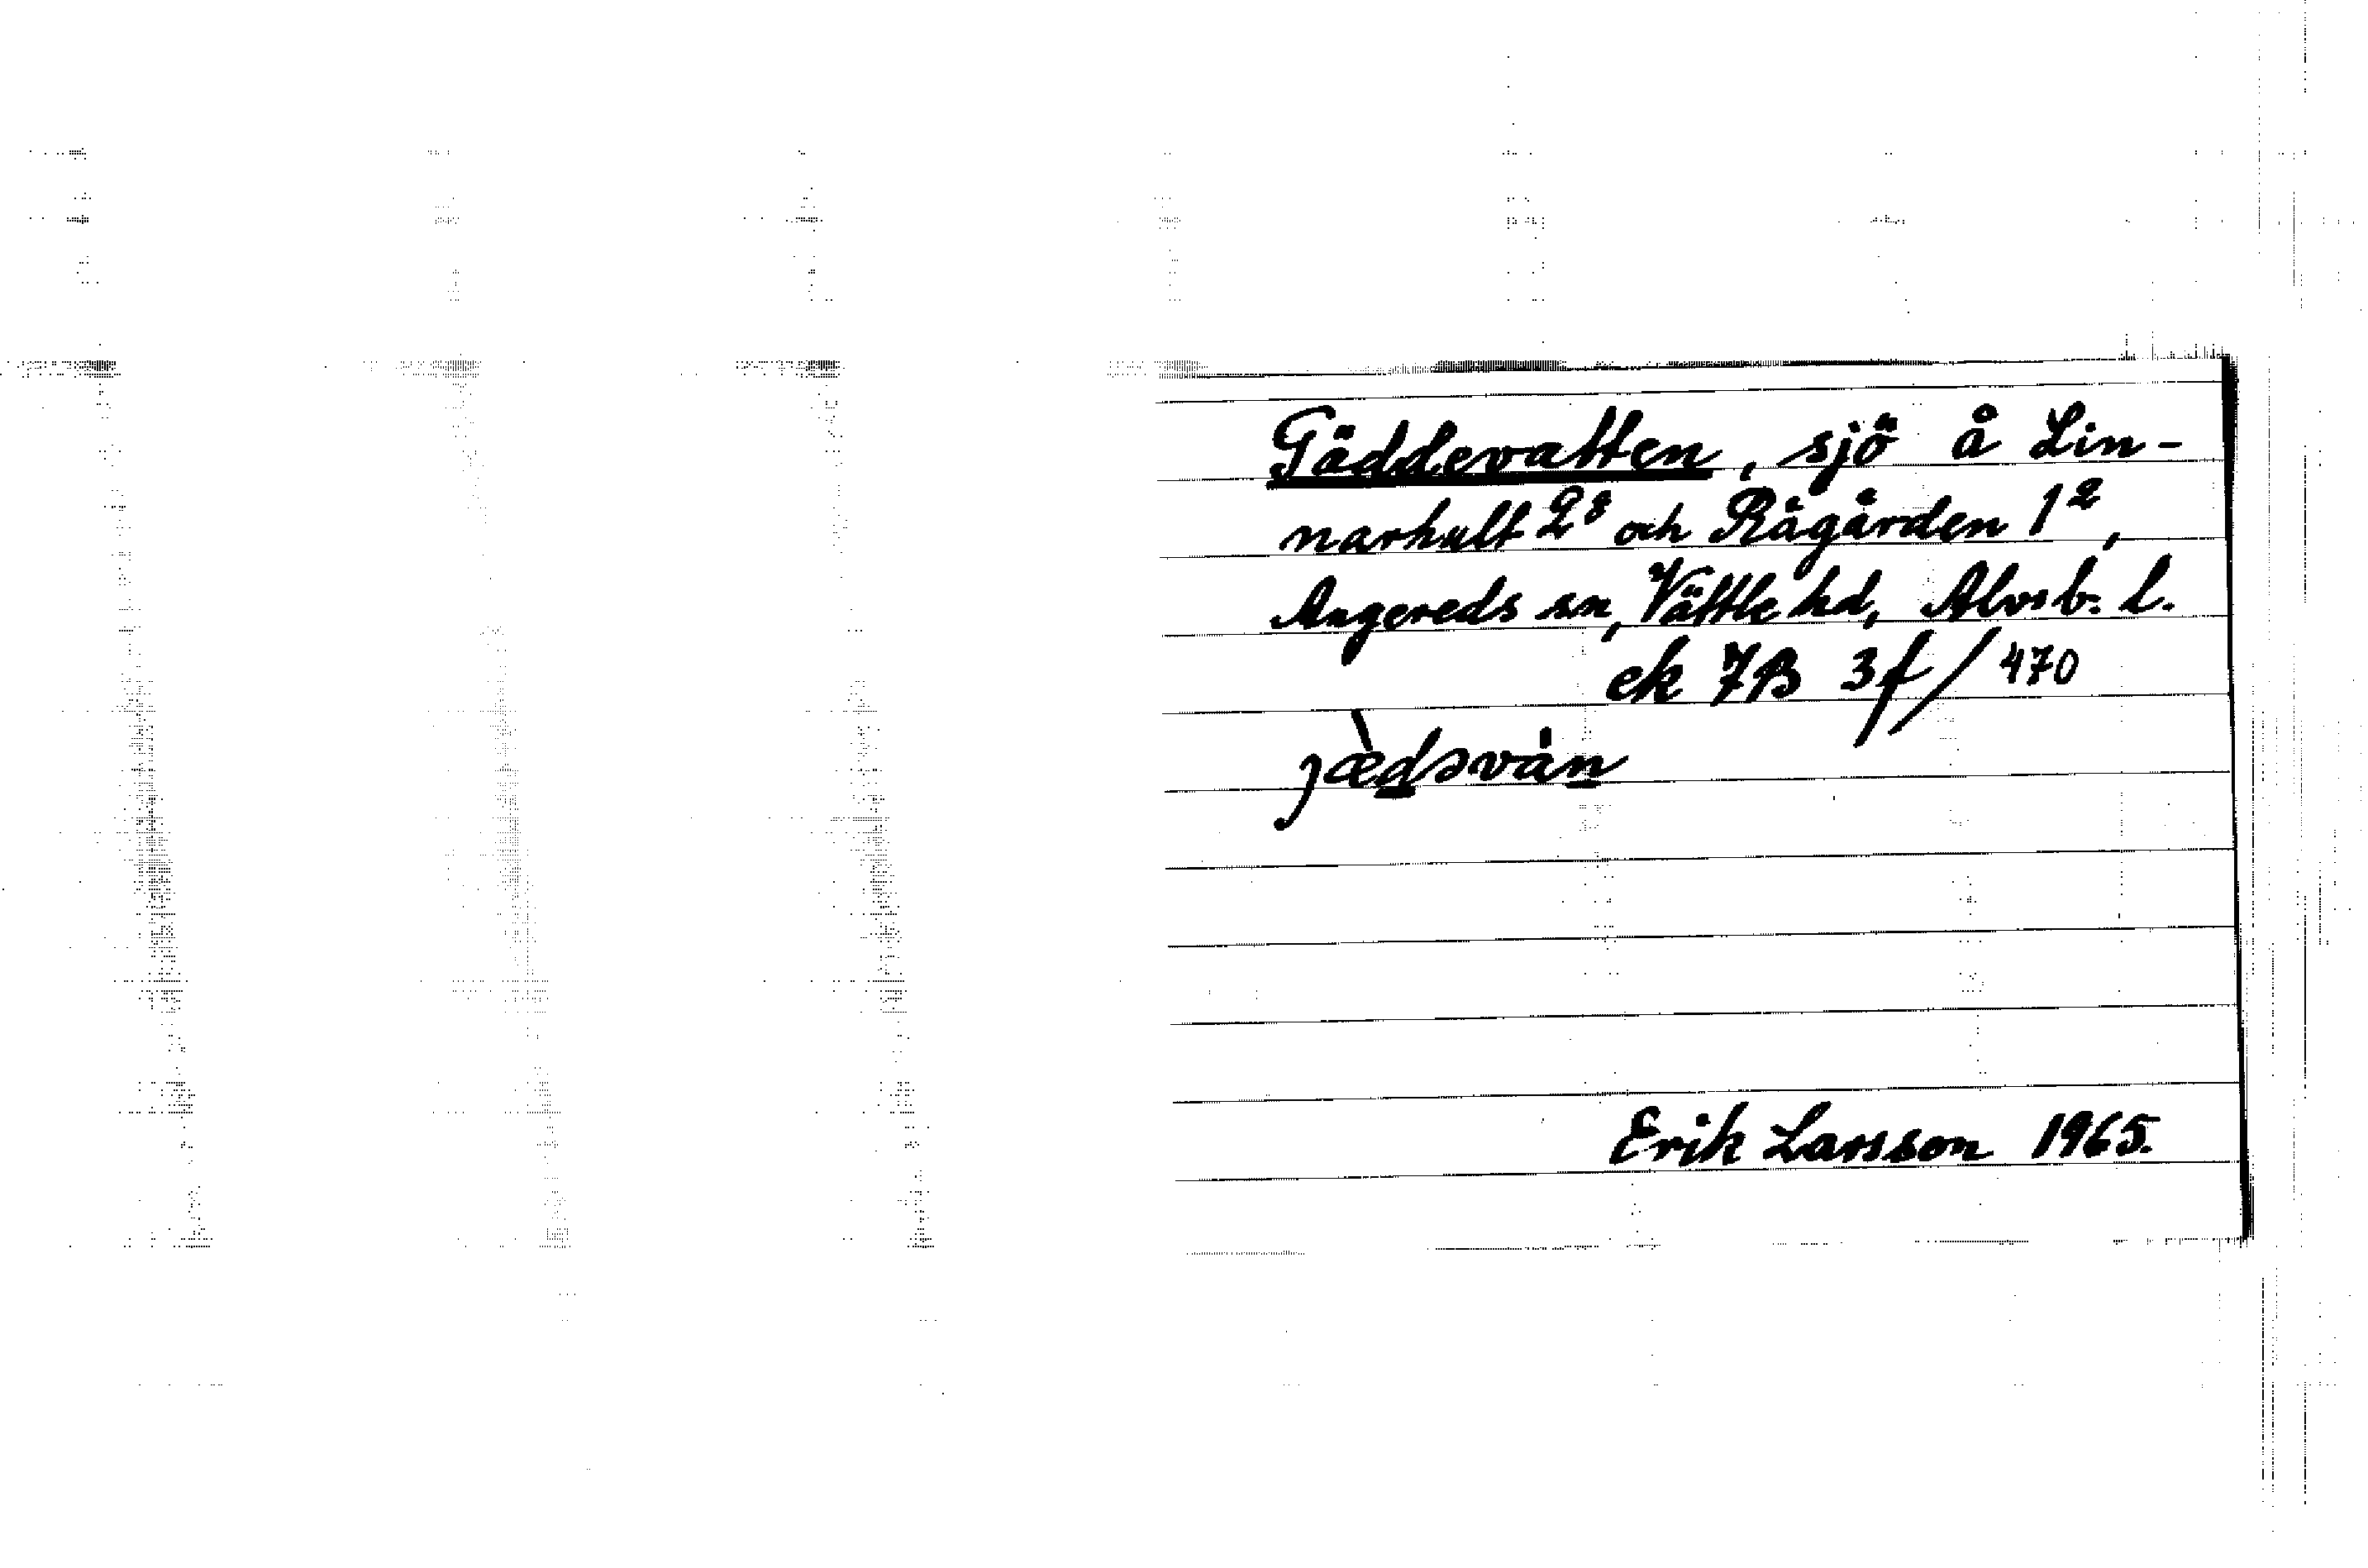 Gäddevatten, sjö å Lin-
narhult 2⁸ och Rågården 1²,
Angereds sn, Vättle hd, Älvsb. l.
ek 7B 3f/470
jæ̀dəvàn
Erik Larsson 1965.